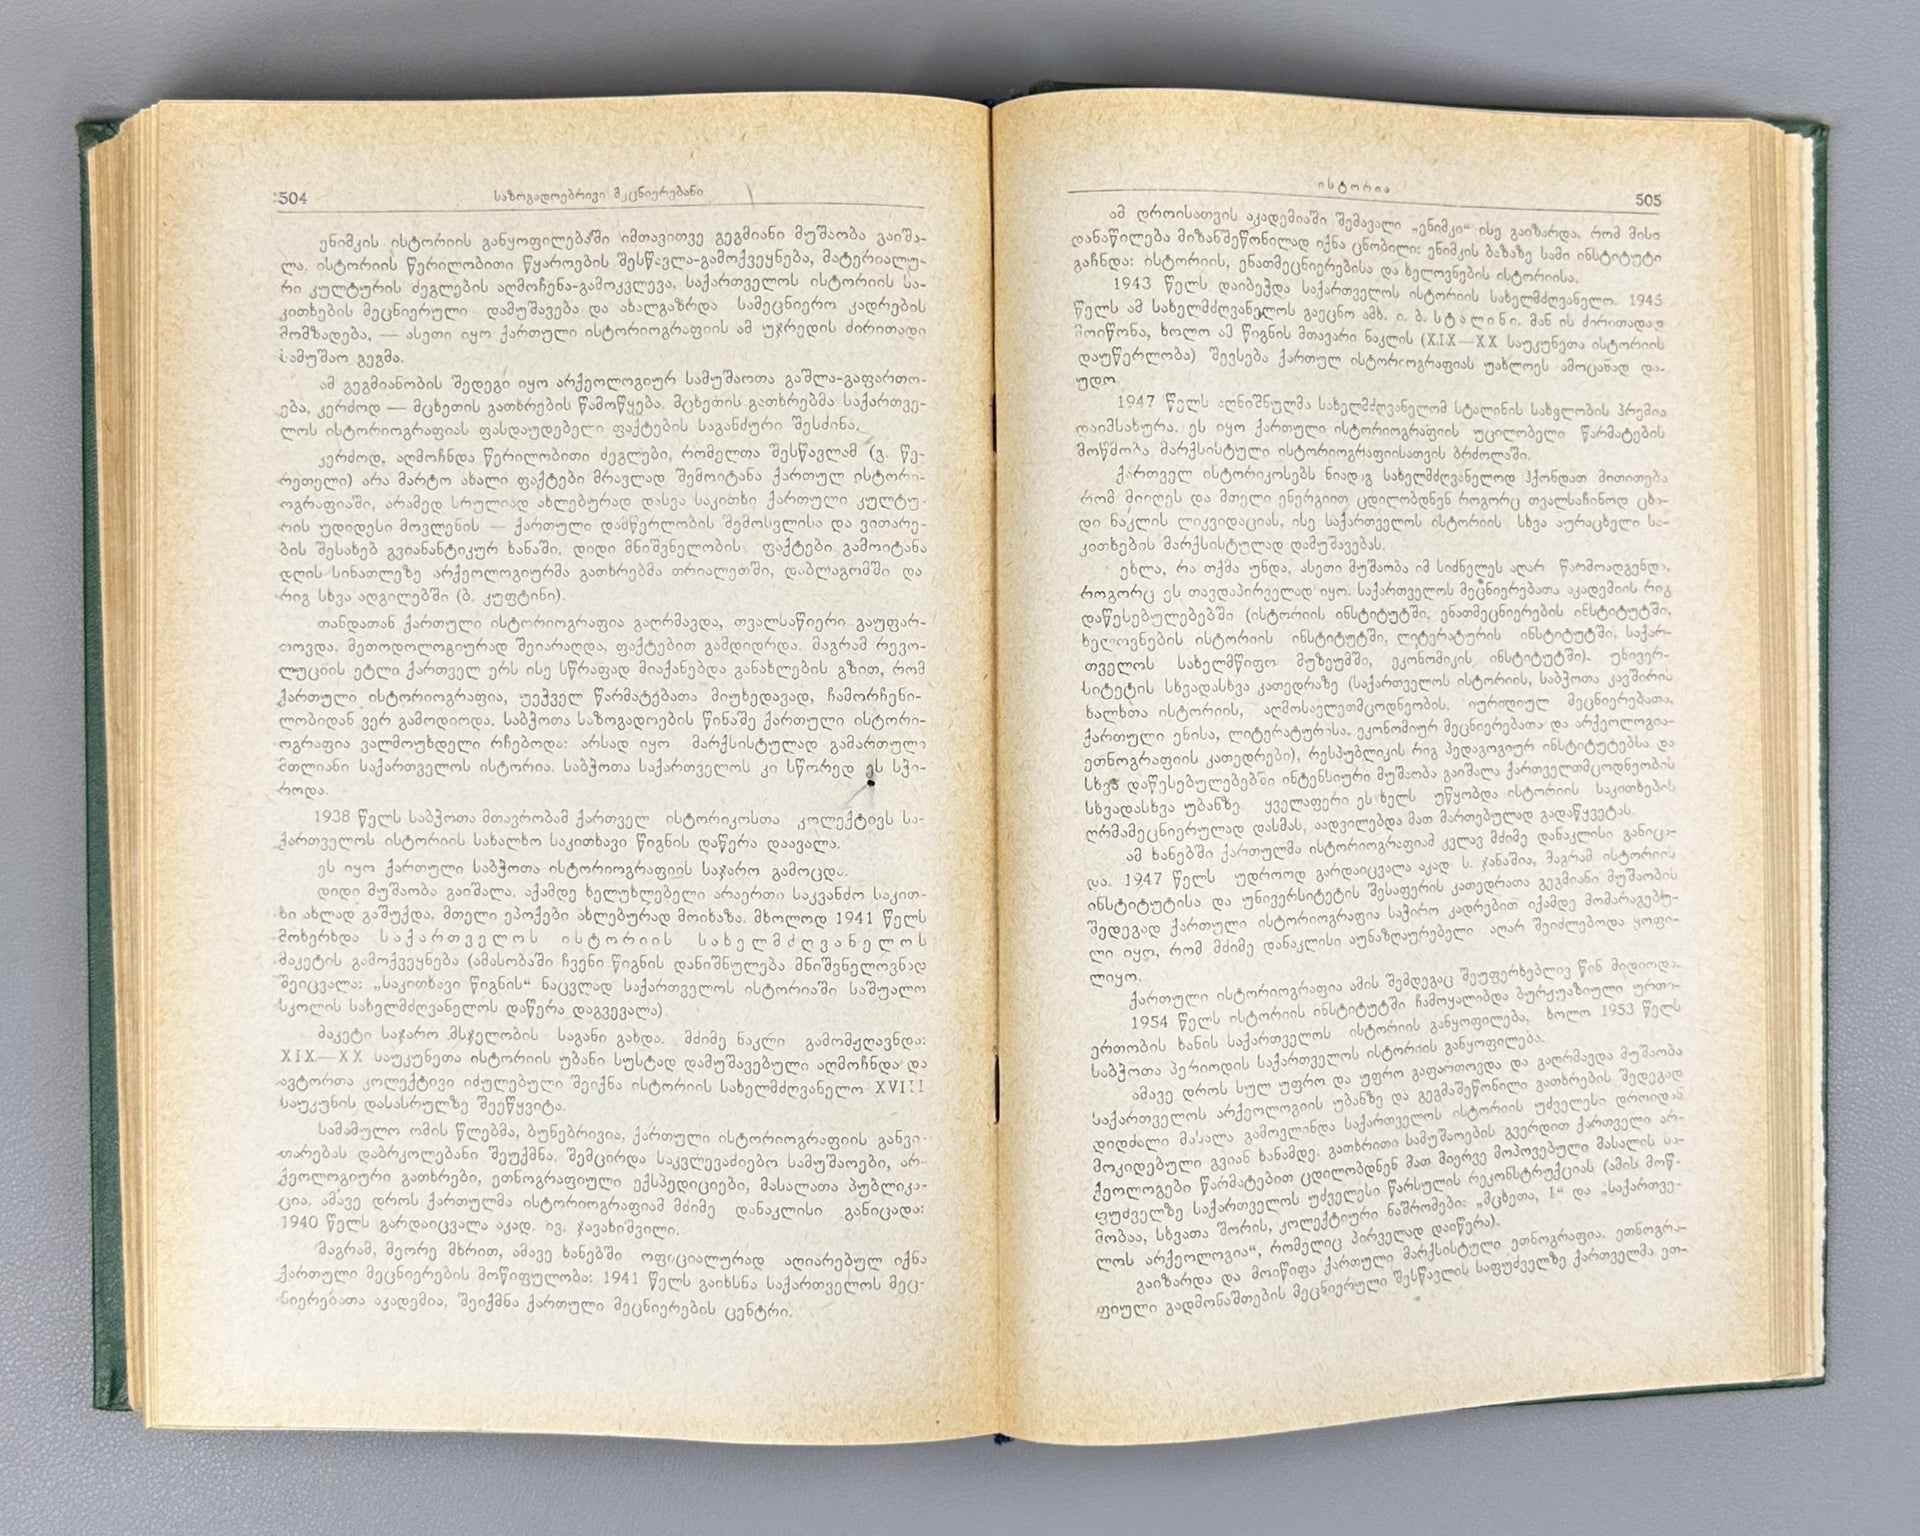 504
საზოგადოებრივი მეცნიერებანი
ენიმკის ისტორიის განყოფილებაში იმთავითვე გეგმიანი მუშაობა გაიშა-
ლა. ისტორიის წერილობითი წყაროების შესწავლა-გამოქვეყნება, მატერიალუ-
რი კულტურის ძეგლების აღმოჩენა-გამოკვლევა, საქართველოს ისტორიის სა-
კითხების მეცნიერული დამუშავება და ახალგაზრდა სამეცნიერო კადრების
მომზადება, — ასეთი იყო ქართული ისტორიოგრაფიის ამ უჯრედის ძირითადი
სამუშაო გეგმა.
ამ გეგმიანობის შედეგი იყო არქეოლოგიურ სამუშაოთა გაშლა-გაფართო-
ება, კერძოდ — მცხეთის გათხრების წამოწყება. მცხეთის გათხრებმა საქართვე-
ლოს ისტორიოგრაფიას ფასდაუდებელი ფაქტების საგანძური შესძინა.
კერძოდ, აღმოჩნდა წერილობითი ძეგლები, რომელთა შესწავლამ (გ. წე-
რეთელი) არა მარტო ახალი ფაქტები მრავლად შემოიტანა ქართულ ისტორი-
ოგრაფიაში, არამედ სრულიად ახლებურად დასვა საკითხი ქართული კულტუ-
რის უდიდესი მოვლენის — ქართული დამწერლობის შემოსვლისა და ვითარე-
ბის შესახებ გვიანანტიკურ ხანაში. დიდი მნიშვნელობის ფაქტები გამოიტანა
დღის სინათლეზე არქეოლოგიურმა გათხრებმა თრიალეთში, დაბლაგომში და
რიგ სხვა ადგილებში (ბ. კუფტინი).
თანდათან ქართული ისტორიოგრაფია გაღრმავდა, თვალსაწიერი გაუფარ-
თოვდა, მეთოდოლოგიურად შეიარაღდა, ფაქტებით გამდიდრდა. მაგრამ რევო-
ლუციის ეტლი ქართველ ერს ისე სწრაფად მიაქანებდა განახლების გზით, რომ
ქართული ისტორიოგრაფია, უეჭველ წარმატებათა მიუხედავად, ჩამორჩენი-
ლობიდან ვერ გამოდიოდა. საბჭოთა საზოგადოების წინაშე ქართული ისტორი-
ოგრაფია ვალმოუხდელი რჩებოდა: არსად იყო მარქსისტულად გამართული
მთლიანი საქართველოს ისტორია. საბჭოთა საქართველოს კი სწორედ ეს სჭი-
როდა.
1938 წელს საბჭოთა მთავრობამ ქართველ ისტორიკოსთა კოლექტივს სა-
ქართველოს ისტორიის სახალხო საკითხავი წიგნის დაწერა დაავალა.
ეს იყო ქართული საბჭოთა ისტორიოგრაფიის საჯარო გამოცდა.
დიდი მუშაობა გაიშალა. აქამდე ხელუხლებელი არაერთი საკვანძო საკით-
ხი ახლად გაშუქდა, მთელი ეპოქები ახლებურად მოიხაზა. მხოლოდ 1941 წელს
მოხერხდა საქართველოს ისტორიის სახელმძღვანელოს
მაკეტის გამოქვეყნება (ამასობაში ჩვენი წიგნის დანიშნულება მნიშვნელოვნად
შეიცვალა: „საკითხავი წიგნის“ ნაცვლად საქართველოს ისტორიაში საშუალო
სკოლის სახელმძღვანელოს დაწერა დაგვევალა)
მაკეტი საჯარო მსჯელობის საგანი გახდა. მძიმე ნაკლი გამომჟღავნდა:
XIX—XX საუკუნეთა ისტორიის უბანი სუსტად დამუშავებული აღმოჩნდა და
ავტორთა კოლექტივი იძულებული შეიქნა ისტორიის სახელმძღვანელო XVIII
საუკუნის დასასრულზე შეეწყვიტა.
სამამულო ომის წლებმა, ბუნებრივია, ქართული ისტორიოგრაფიის განვი-
თარებას დაბრკოლებანი შეუქმნა. შემცირდა საკვლევაძიებო სამუშაოები, არ-
ქეოლოგიური გათხრები, ეთნოგრაფიული ექსპედიციები, მასალათა პუბლიკა-
ცია. ამავე დროს ქართულმა ისტორიოგრაფიამ მძიმე დანაკლისი განიცადა:
1940 წელს გარდაიცვალა აკად. ივ. ჯავახიშვილი.
მაგრამ, მეორე მხრით, ამავე ხანებში ოფიციალურად აღიარებულ იქნა
ქართული მეცნიერების მოწიფულობა: 1941 წელს გაიხსნა საქართველოს მეც-
ნიერებათა აკადემია, შეიქმნა ქართული მეცნიერების ცენტრი.
ისტორია
505
ამ დროისათვის აკადემიაში შემავალი „ენიმკი“ ისე გაიზარდა, რომ მისი
დანაწილება მიზანშეწონილად იქნა ცნობილი: ენიმკის ბაზაზე სამი ინსტიტუტი
გაჩნდა: ისტორიის, ენათმეცნიერებისა და ხელოვნების ისტორიისა.
1943 წელს დაიბეჭდა საქართველოს ისტორიის სახელმძღვანელო. 1945
წელს ამ სახელმძღვანელოს გაეცნო ამხ. ი. ბ. სტალინი. მან ის ძირითადად
მოიწონა, ხოლო ამ წიგნის მთავარი ნაკლის (XIX—XX საუკუნეთა ისტორიის
დაუწერლობა) შევსება ქართულ ისტორიოგრაფიას უახლოეს ამოცანად და-
უდო.
1947 წელს აღნიშნულმა სახელმძღვანელომ სტალინის სახელობის პრემია
დაიმსახურა. ეს იყო ქართული ისტორიოგრაფიის უცილობელი წარმატების
მოწმობა მარქსისტული ისტორიოგრაფიისათვის ბრძოლაში.
ქართველ ისტორიკოსებს ნიადაგ სახელმძღვანელოდ ჰქონდათ მითითება
რომ მიიღეს და მთელი ენერგიით ცდილობდნენ როგორც თვალსაჩინოდ ცხა-
დი ნაკლის ლიკვიდაციას, ისე საქართველოს ისტორიის სხვა აურაცხელი სა-
კითხების მარქსისტულად დამუშავებას.
ეხლა, რა თქმა უნდა, ასეთი მუშაობა იმ სიძნელეს აღარ წარმოადგენდა,
როგორც ეს თავდაპირველად იყო. საქართველოს მეცნიერებათა აკადემიის რიგ
დაწესებულებებში (ისტორიის ინსტიტუტში, ენათმეცნიერების ინსტიტუტში,
ხელოვნების ისტორიის ინსტიტუტში, ლიტერატურის ინსტიტუტში, საქარ-
თველოს სახელმწიფო მუზეუმში, ეკონომიკის ინსტიტუტში). უნივერ-
სიტეტის სხვადასხვა კათედრაზე (საქართველოს ისტორიის, საბჭოთა კავშირის
ხალხთა ისტორიის, აღმოსავლეთმცოდნეობის, იურიდიულ მეცნიერებათა,
ქართული ენისა, ლიტერატურისა, ეკონომიურ მეცნიერებათა და არქეოლოგია-
ეთნოგრაფიის კათედრები), რესპუბლიკის რიგ პედაგოგიურ ინსტიტუტებსა და
სხვა დაწესებულებებში ინტენსიური მუშაობა გაიშალა ქართველთმცოდნეობის
სხვადასხვა უბანზე. ყველაფერი ეს ხელს უწყობდა ისტორიის საკითხების
ღრმამეცნიერულად დასმას, აადვილებდა მათ მართებულად გადაწყვეტას.
ამ ხანებში ქართულმა ისტორიოგრაფიამ კვლავ მძიმე დანაკლისი განიცა-
და. 1947 წელს უდროოდ გარდაიცვალა აკად. ს. ჯანაშია, მაგრამ ისტორიის
ინსტიტუტისა და უნივერსიტეტის შესაფერის კათედრათა გეგმიანი მუშაობის
შედეგად ქართული ისტორიოგრაფია საჭირო კადრებით იქამდე მომარაგებუ-
ლი იყო, რომ მძიმე დანაკლისი აუნაზღაურებელი აღარ შეიძლებოდა ყოფი-
ლიყო.
ქართული ისტორიოგრაფია ამის შემდეგაც შეუფერხებლივ წინ მიდიოდა.
1954 წელს ისტორიის ინსტიტუტში ჩამოყალიბდა ბურჟუაზიული ურთი-
ერთობის ხანის საქართველოს ისტორიის განყოფილება, ხოლო 1953 წელს
საბჭოთა პერიოდის საქართველოს ისტორიის განყოფილება.
ამავე დროს სულ უფრო და უფრო გაფართოვდა და გაღრმავდა მუშაობა
საქართველოს არქეოლოგიის უბანზე და გეგმაშეწონილი გათხრების შედეგად
დიდძალი მასალა გამოვლინდა საქართველოს ისტორიის უძველესი დროიდან
მოკიდებული გვიან ხანამდე. გათხრითი სამუშაოების გვერდით ქართველი არ-
ქეოლოგები წარმატებით ცდილობდნენ მათ მიერვე მოპოვებული მასალის სა-
ფუძველზე საქართველოს უძველესი წარსულის რეკონსტრუქციას (ამის მოწ-
მობაა, სხვათა შორის, კოლექტიური ნაშრომები: „მცხეთა, I“ და „საქართვე-
ლოს არქეოლოგია“, რომელიც პირველად დაიწერა).
გაიზარდა და მოიწიფა ქართული მარქსისტული ეთნოგრაფია. ეთნოგრა-
ფიული გადმონაშთების მეცნიერული შესწავლის საფუძველზე ქართველმა ეთ-